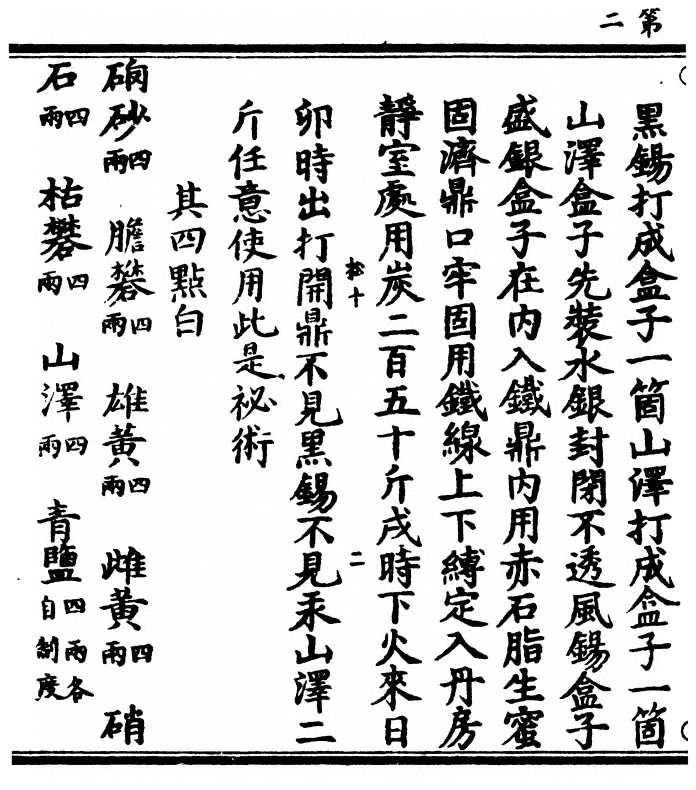 第二
黑錫打成盒子一箇山澤打成盒子一箇
山澤盒子先裝水銀封閉不透風錫盒子
盛銀盒子在內入鐵鼎內用赤石脂生蜜
固濟鼎口牢固用鐵線上下縛定入丹房
靜室處用炭二百五十斤戌時下火來日
松十
二
卯時出打開鼎不見黑錫不見汞山澤二
斤任意使用此是祕術
其四點白
硇砂四兩 膽礬四兩 雄黃四兩 雌黃四兩 硝
石四兩 枯礬四兩 山澤四兩 青鹽四兩各自制度